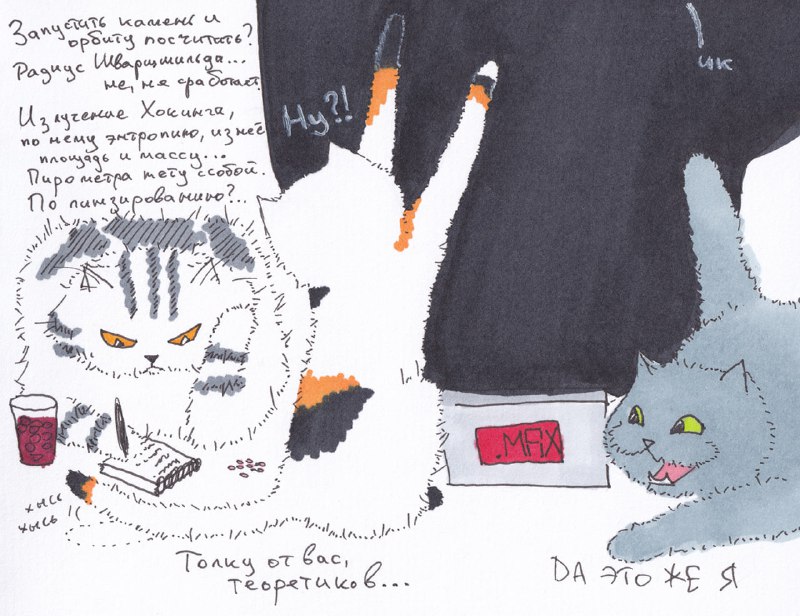 Запустить камень и
орбиту посчитать?
Радиус Шварцшильда...
не, не сработает.
Излучение Хокинга,
по нему энтропию, из неё
площадь и массу...
Пирометра нету с собой.
По линзированию?..
Ну?!
ик
.MAX
хысь
хысь
Толку от вас,
теоретиков...
DA ЭТО ЖЕ Я